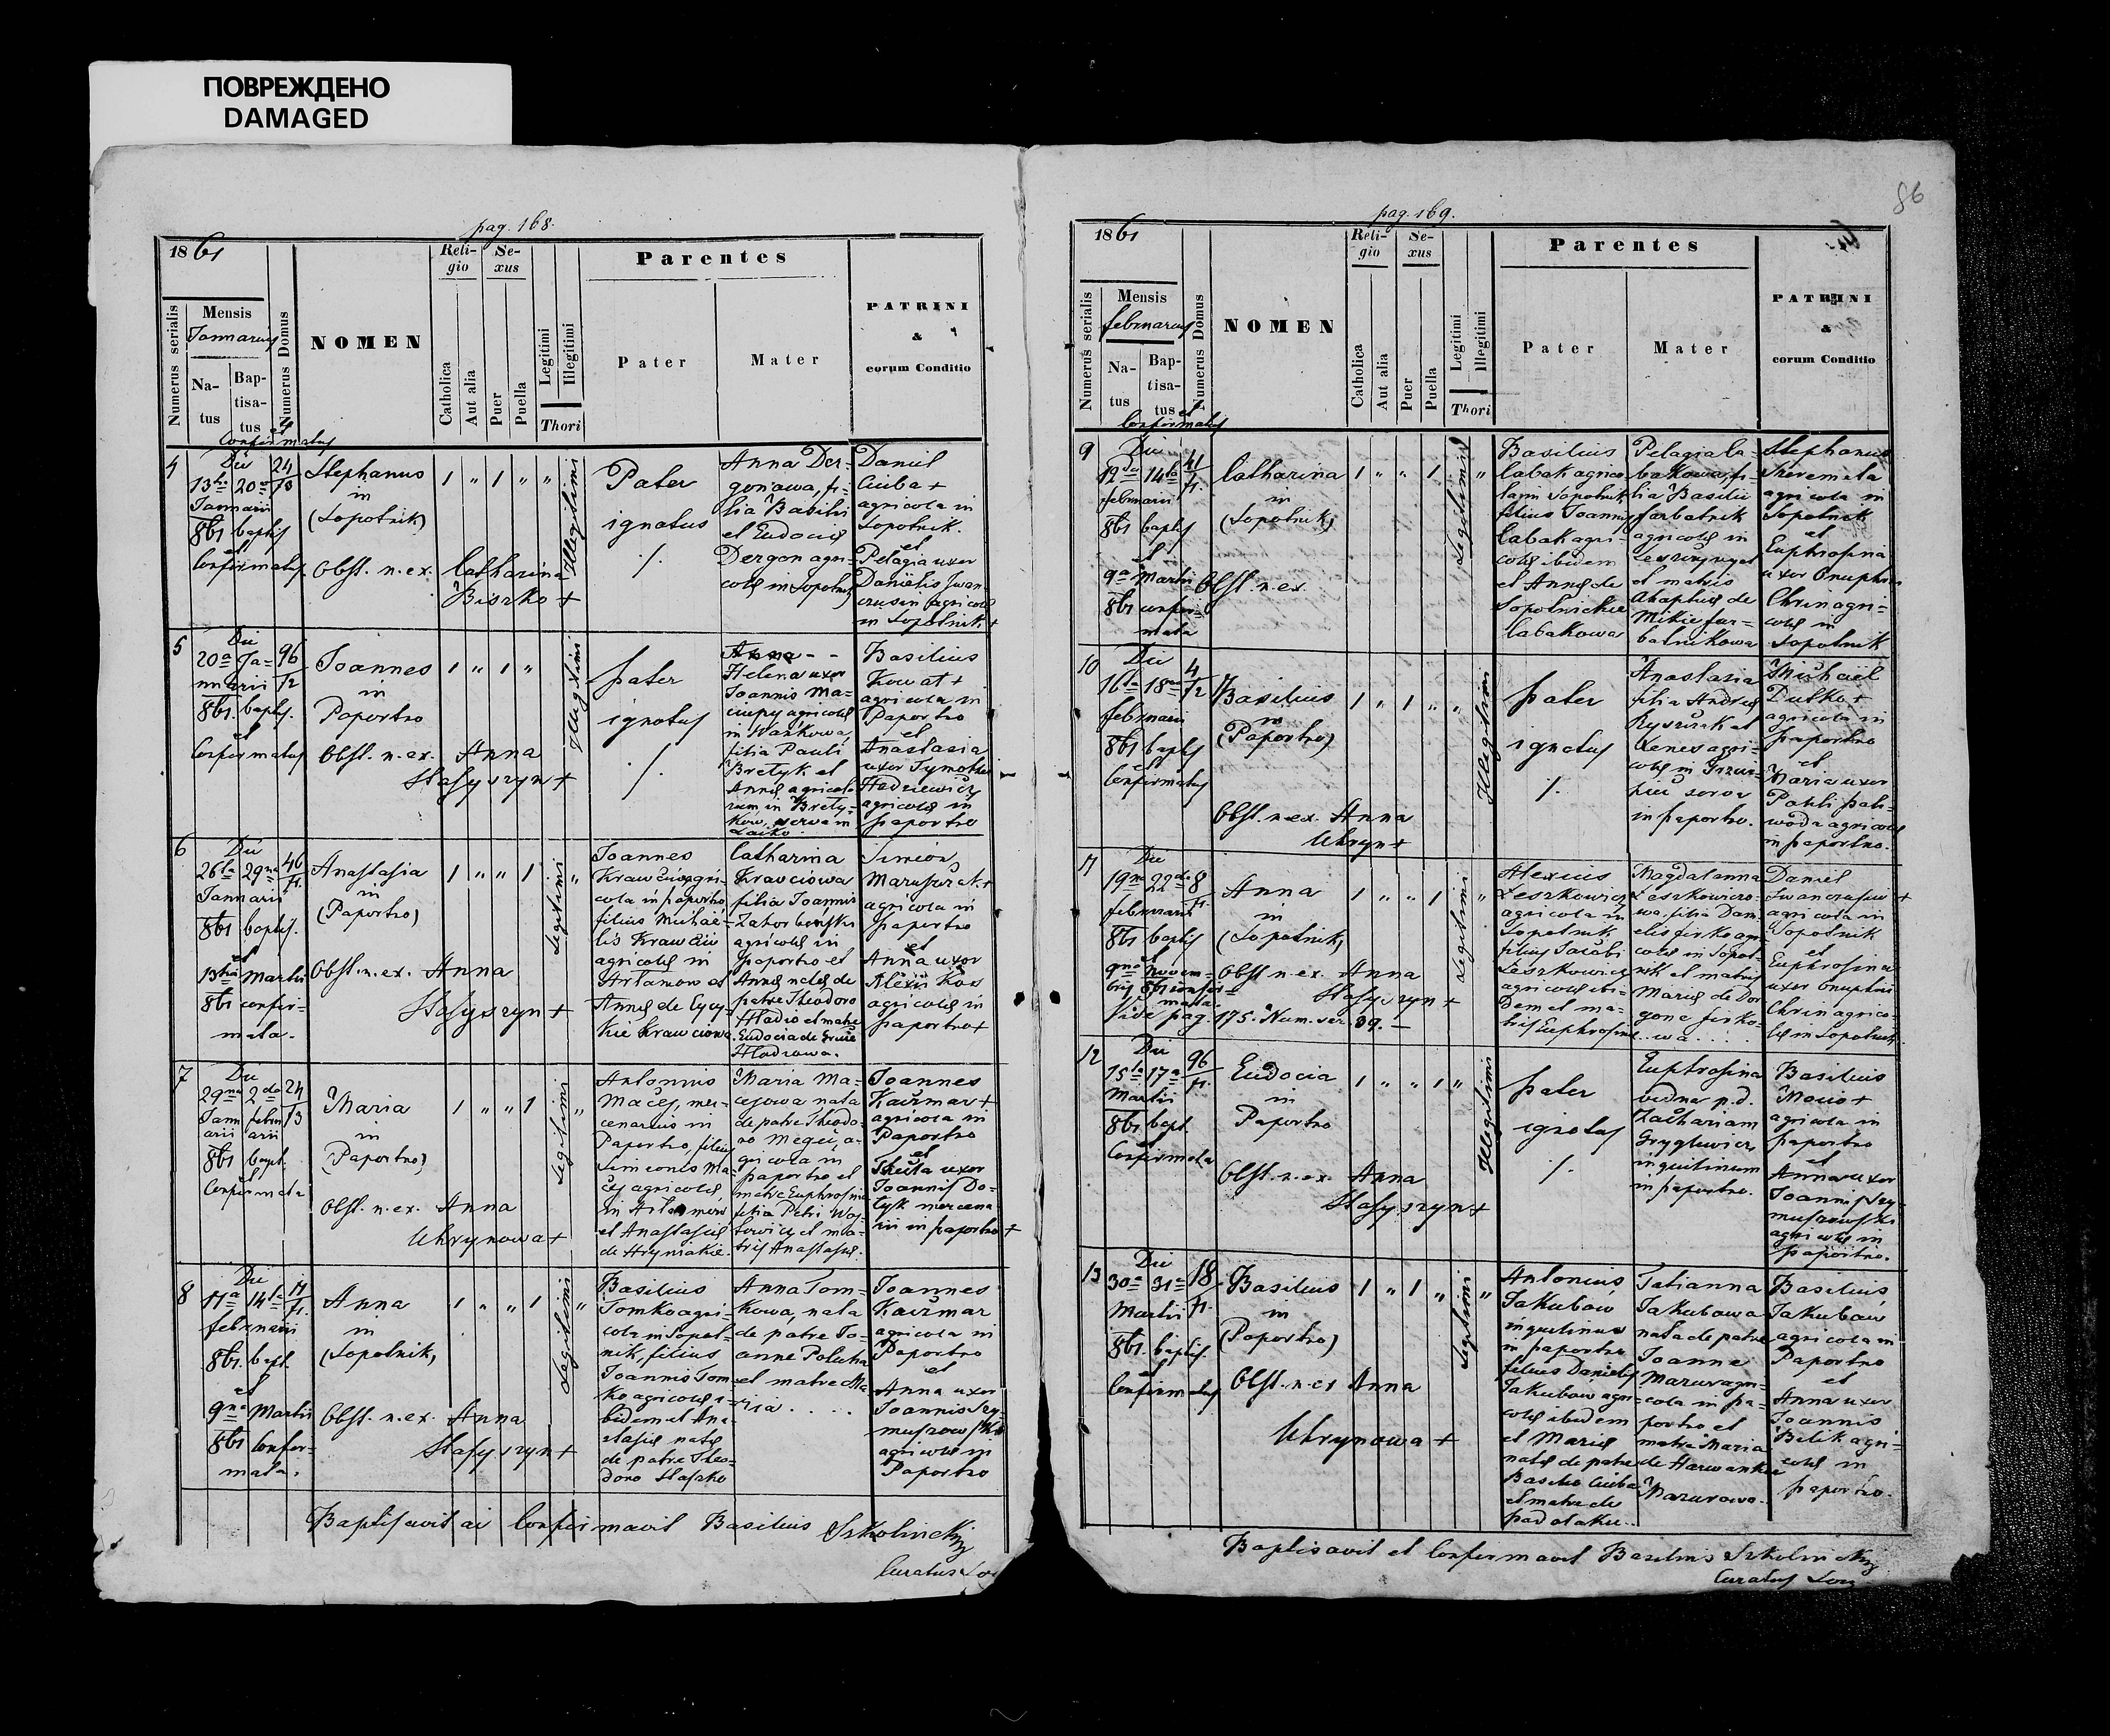 ПОВРЕЖДЕНО
DAMAGED
pag. 168.
1861
Numerus serialis
Mensis
Januarius
Natus
Baptisatus
et
Confirmatus
Numerus Domus
NOMEN
Religio
Catholica
Aut alia
Sexus
Puer
Puella
Legitimi
Illegitimi
Thori
Parentes
Pater
Mater
PATRINI
&
eorum Conditio
4
Die
13tia 20a
Januarii
861 baptis
et
Confirmatus
24
Stephanus
in
(Sopotnik)
1 " 1 " "
Illegitimi
Obst. n. ex. Catharina
Biszko +
Pater
ignotus
./.
Anna Der-
gonowa, fi-
lia Basilii
et Eudociæ
Dergon agri-
colæ in Sopotnik
Daniel
Ciuba +
agricola in
Sopotnik.
et
Pelagia uxor
Danielis Iwan-
crusin agricolæ
in Sopotnik +
5
Die
20a Ja-
nuarii
861. baptis.
et
Confirmatus
96
Joannes
in
Paportno
1 " 1 "
Illegitimi
Obst. n. ex. Anna
Stasyszyn +
pater
ignotus
./.
Helena uxor
Joannis Ma-
ciupy agricolæ
in Wankowa,
filia Pauli
Bretyk et
Annæ agricola-
rum in Brety-
kow, serva in
Basilius
Kowat +
agricola in
Paportno
et
Anastasia
uxor Tymothei
Hadziewicz
agricolæ in
paportno
6
Die
26ta 29na
Januarii
861 baptis.
et
13tia Martii
861 confir-
mata.
46
Anastasia
in
(Paportno)
1 " " 1 "
Legitimi
Obst. n. ex. Anna
Stasyszyn +
Joannes
Krawciow agri-
cola in paportno
filius Michaë-
lis Krawciw
agricolæ in
Artamow et
Annæ de
Krawciowa.
Catharina
Krawciowa
filia Joannis
agricolæ in
Paportno et
Annæ natæ de
patre Theodoro
Hladio et matre
Eudocia de
Hladiowa.
Simeon
Maruszczak +
agricola in
Paportno
et
Anna uxor
Alexii Kos
agricolæ in
paportno +
7
Die
29na 2da
Janu- febru-
arii arii
861 bapt.
Confirmata
24
Maria
in
(Paportno)
1 " " 1 "
Legitimi
Obst. n. ex. Anna
Uhrynowa +
Antonius
Maćej, mer-
cenarius in
Paportno, filius
Simeonis Ma-
ćej agricolæ
in Artamow
et Anastasiæ
de Hryniakie.
Maria Ma-
cejowa nata
de patre Theodo-
ro Megeć, a-
gricola in
paportno et
matre Euphrosina
filia Petri Woj-
towicz et ma-
tris Anastasiæ.
Joannes
Kaczmar +
agricola in
Paportno
et
Thecla uxor
Joannis Do-
tyk mercena-
rii in paportno +
8
Die
11a 14ta
februarii
861. bapt.
et
9na Martii
861 Confir-
mata.
Anna
in
(Sopotnik)
1 " " 1 "
Legitimi
Obst. n. ex. Anna
Stasyszyn +
Basilius
Tomko agri-
cola in Sopot-
nik, filius
Joannis Tom-
ko agricolæ i-
bidem et Ana-
stasiæ natæ
de patre Theo-
doro Stasako
Anna Tom-
kowa, nata
de patre Jo-
anne Polucha
et matre Ma-
ria. . . .
Joannes
Kaczmar
agricola in
Paportno
et
Anna uxor
Joannis Szy-
muszowski
agricolæ in
Paportno
Baptisavit ac Confirmavit Basilius Szkolnickij
Curatus
86
pag. 169.
1861
Numerus serialis
Mensis
februarius
Natus
Baptisatus
et
Confirmatus
Numerus Domus
NOMEN
Religio
Catholica
Aut alia
Sexus
Puer
Puella
Legitimi
Illegitimi
Thori
Parentes
Pater
Mater
PATRINI
&
eorum Conditio
9
Die
12da 14ta
februarii
861 baptis
et
9a Martii
861 confir-
mata
41
Catharina
in
(Sopotnik)
1 " " 1 "
Legitimi
Obst. n. ex.
Basilius
Cabak agrico-
la in Sopotnik
filius Joannis
Cabak agri-
colæ ibidem
et Annæ de
Sopotnickie
Cabakowa
Pelagia Ca-
bakowa, fi-
lia Basilii
Farbatnik
agricolæ in
et matris
Ahaphiæ de
Mikie Far-
batnikowa
Stephanus
Szeremeta
agricola in
Sopotnik
et
Euphrosina
uxor Onuphrii
Chrin agri-
colæ in
Sopotnik
10
Die
16ta 18va
februarii
861 baptis
et
Confirmatus
4
12
Basilius
in
(Paportno)
1 " 1 " "
Illegitimi
Obst. n. ex. Anna
Uhryn +
pater
ignotus
./.
Anastasia
filia Andreæ
Ryszczak et
Xenes agri-
colæ in
serva
in paportno.
Michaël
Dutko +
agricola in
paportno
et
Maria uxor
Pauli Pali-
woda agricolæ
in paportno.
11
Die
19na 22da
februarii
861 baptis
et
9na Novem-
bris 861 confir-
mata.
Vide pag. 175. Num. ser. 39. —
8
Anna
in
(Sopotnik)
1 " " 1 "
Legitimi
Obst. n. ex. Anna
Stasyszyn +
Alexius
Leszkowicz
agricola in
Sopotnik
filius Jacobi
Leszkowicz
agricolæ ibi-
dem et ma-
tris Euphrosinæ
Magdalanna
Leszkowiczo-
wa, filia Dani-
elis Firko agri-
colæ in Sopot-
nik et matris
Mariæ de Der-
gone Firko-
wa . . . .
Daniel
Iwancrusin +
agricola in
Sopotnik
et
Euphrosina
uxor Onuphrii
Chrin agrico-
læ in Sopotnik
12
Die
15ta 17a
Martii
861 bapt.
et
Confirmata
96
Eudocia
in
Paportno
1 " " 1 "
Illegitimi
Obst. n. ex. Anna
Stasyszyn +
pater
ignotus
./.
Euphrosina
vidua p. d.
Zachariam
Hryglewicz
inquilinum
in paportno.
Basilius
Mocio +
agricola in
paportno
et
Anna uxor
Joannis Szy-
muszowski
agricolæ in
paportno.
13
Die
30a 31a
Martii
861. baptis.
et
Confirmatus
18
Basilius
in
(Paportno)
1 " 1 " "
Legitimi
Obst. n. ex Anna
Uhrynowa +
Antonius
Jakubow
inquilinus
in paportno
filius Danielis
Jakubow agri-
colæ ibidem
et Mariæ
natæ de patre
Basilio Ciuba
et matre de
Padolakie..
Tatianna
Jakubowa
nata de patre
Joanne
Mazur agri-
cola in pa-
portno et
matre Maria
de Harwankie
Mazurowa.
Basilius
Jakubow
agricola in
Paportno
et
Anna uxor
Joannis
Bilik agri-
colæ in
paportno.
Baptisavit et Confirmavit Basilius Szkolnickij
Curatus